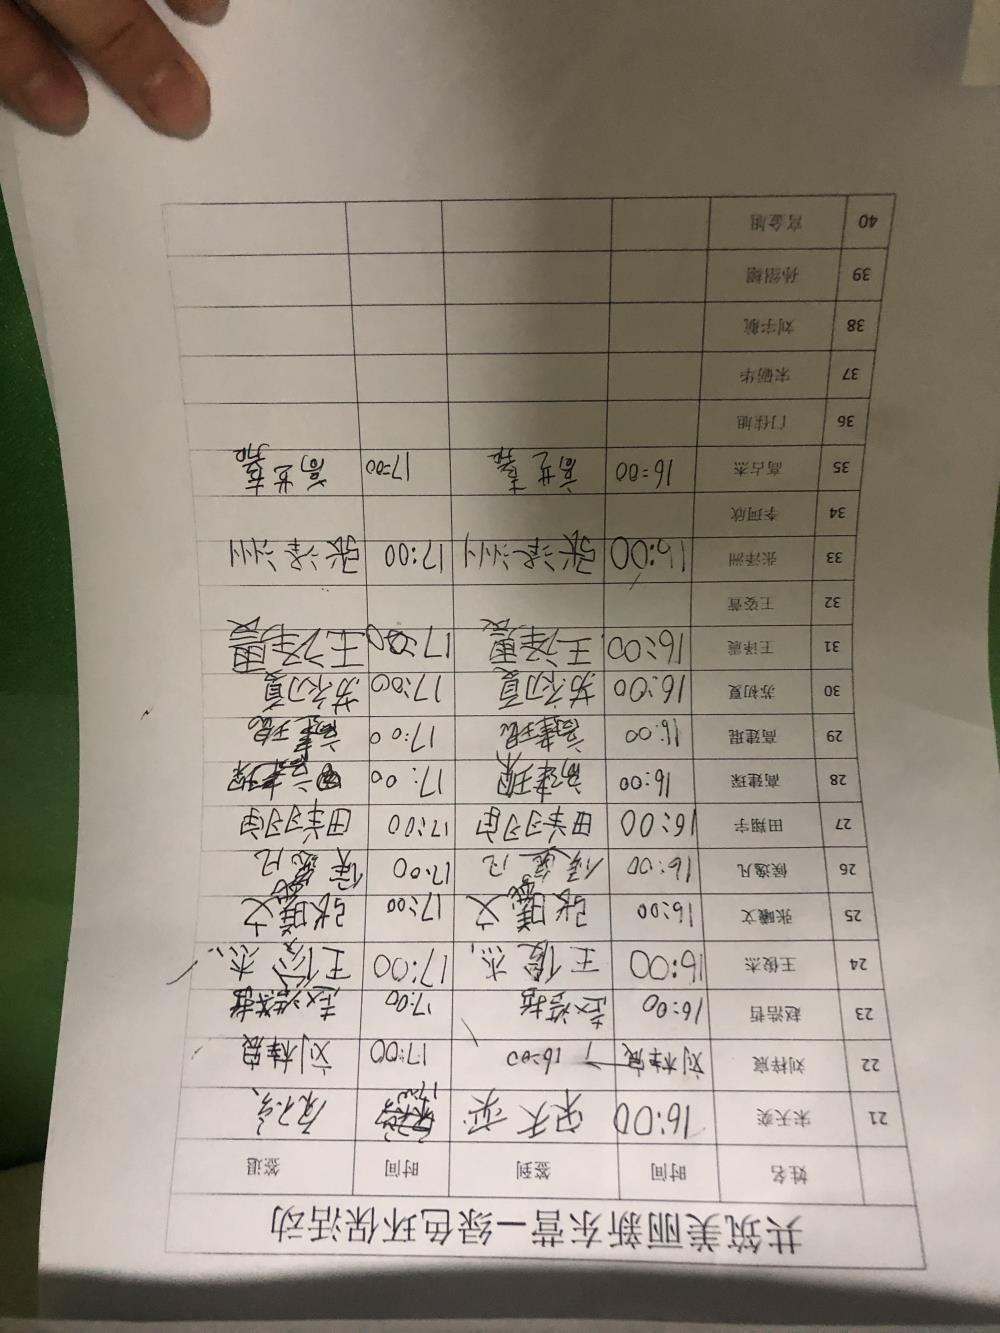 共筑美丽新东营一绿色环保活动
姓名 时间 签到 时间 签退
21 宋天奕 16:00 宋天奕 17:00
22 刘梓宸 刘梓宸 16:00 17:00 刘梓宸
23 赵浩哲 16:00 赵浩哲 17:00 赵浩哲
24 王俊杰 16:00 王俊杰 17:00 王俊杰
25 张曦文 16:00 张曦文 17:00 张曦文
26 候逸凡 16:00 候逸凡 17:00 候逸凡
27 田翔宇 16:00 田翔宇 17:00 田翔宇
28 高建琛 16:00 高建琛 17:00
29 高建琨 16:00 高建琨 17:00 高建琨
30 苏初夏 16:00 苏初夏 17:00 苏初夏
31 王泽震 16:00 王泽震 17:00 王泽震
32 王姿萱
33 张泽洲 16:00 张泽洲 17:00 张泽洲
34 李珂欣
35 高占杰 16:00 17:00
36 门佳旭
37 宋砺华
38 刘宇航
39 孙绍翔
40 宫金旭